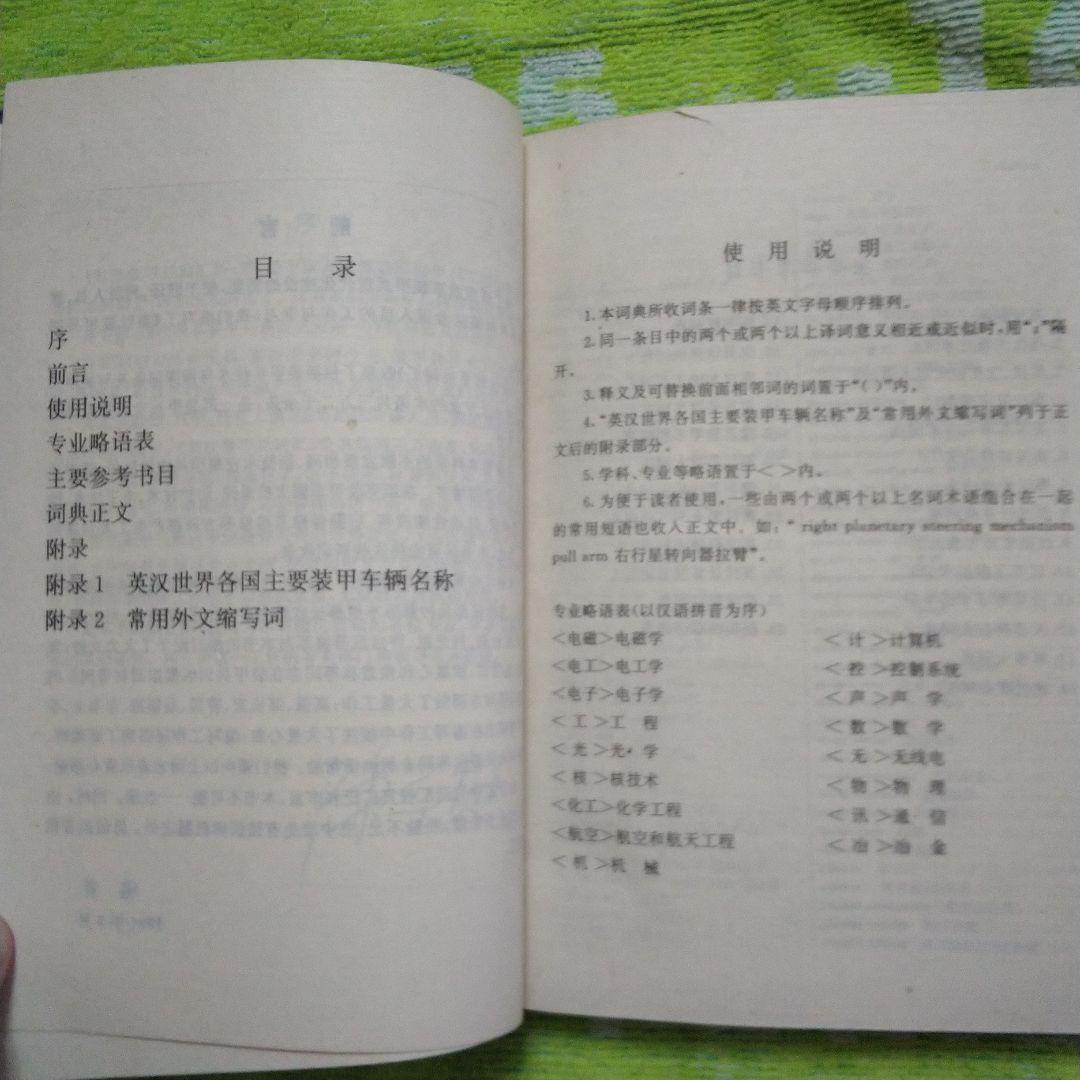 目 录
序
前言
使用说明
专业略语表
主要参考书目
词典正文
附录
附录1 英汉世界各国主要装甲车辆名称
附录2 常用外文缩写词
使 用 说 明
1.本词典所收词条一律按英文字母顺序排列。
2.同一条目中的两个或两个以上译词意义相近或近似时,用“;”隔
开。
3.释义及可替换前面相邻词的词置于“( )”内。
4.“英汉世界各国主要装甲车辆名称”及“常用外文缩写词”列于正
文后的附录部分。
5.学科、专业等略语置于< >内。
6.为便于读者使用,一些由两个或两个以上名词术语组合在一起
的常用短语也收入正文中。如:“right planetary steering mechanism
pull arm 右行星转向器拉臂”。
专业略语表(以汉语拼音为序)
<电磁>电磁学
<电工>电工学
<电子>电子学
<工>工 程
<光>光 学
<核>核技术
<化工>化学工程
<航空>航空和航天工程
<机>机 械
<计>计算机
<控>控制系统
<声>声 学
<数>数 学
<无>无线电
<物>物 理
<讯>通 信
<冶>冶 金